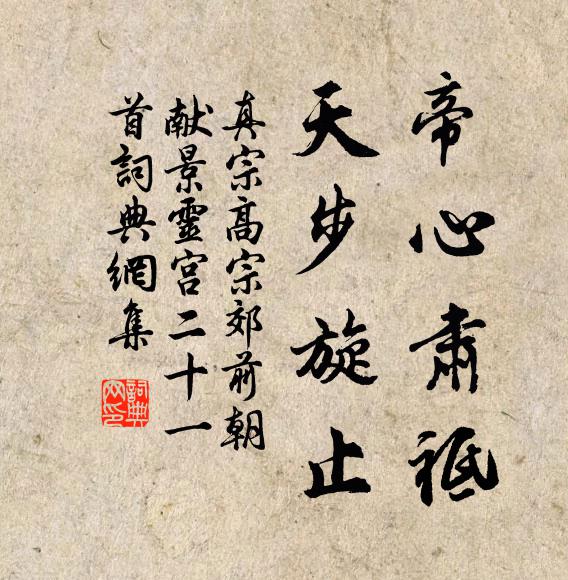 帝心肃祗
天步旋止
真宗高宗郊前朝
献景靈宫二十一
首詞典網集
詞典网印